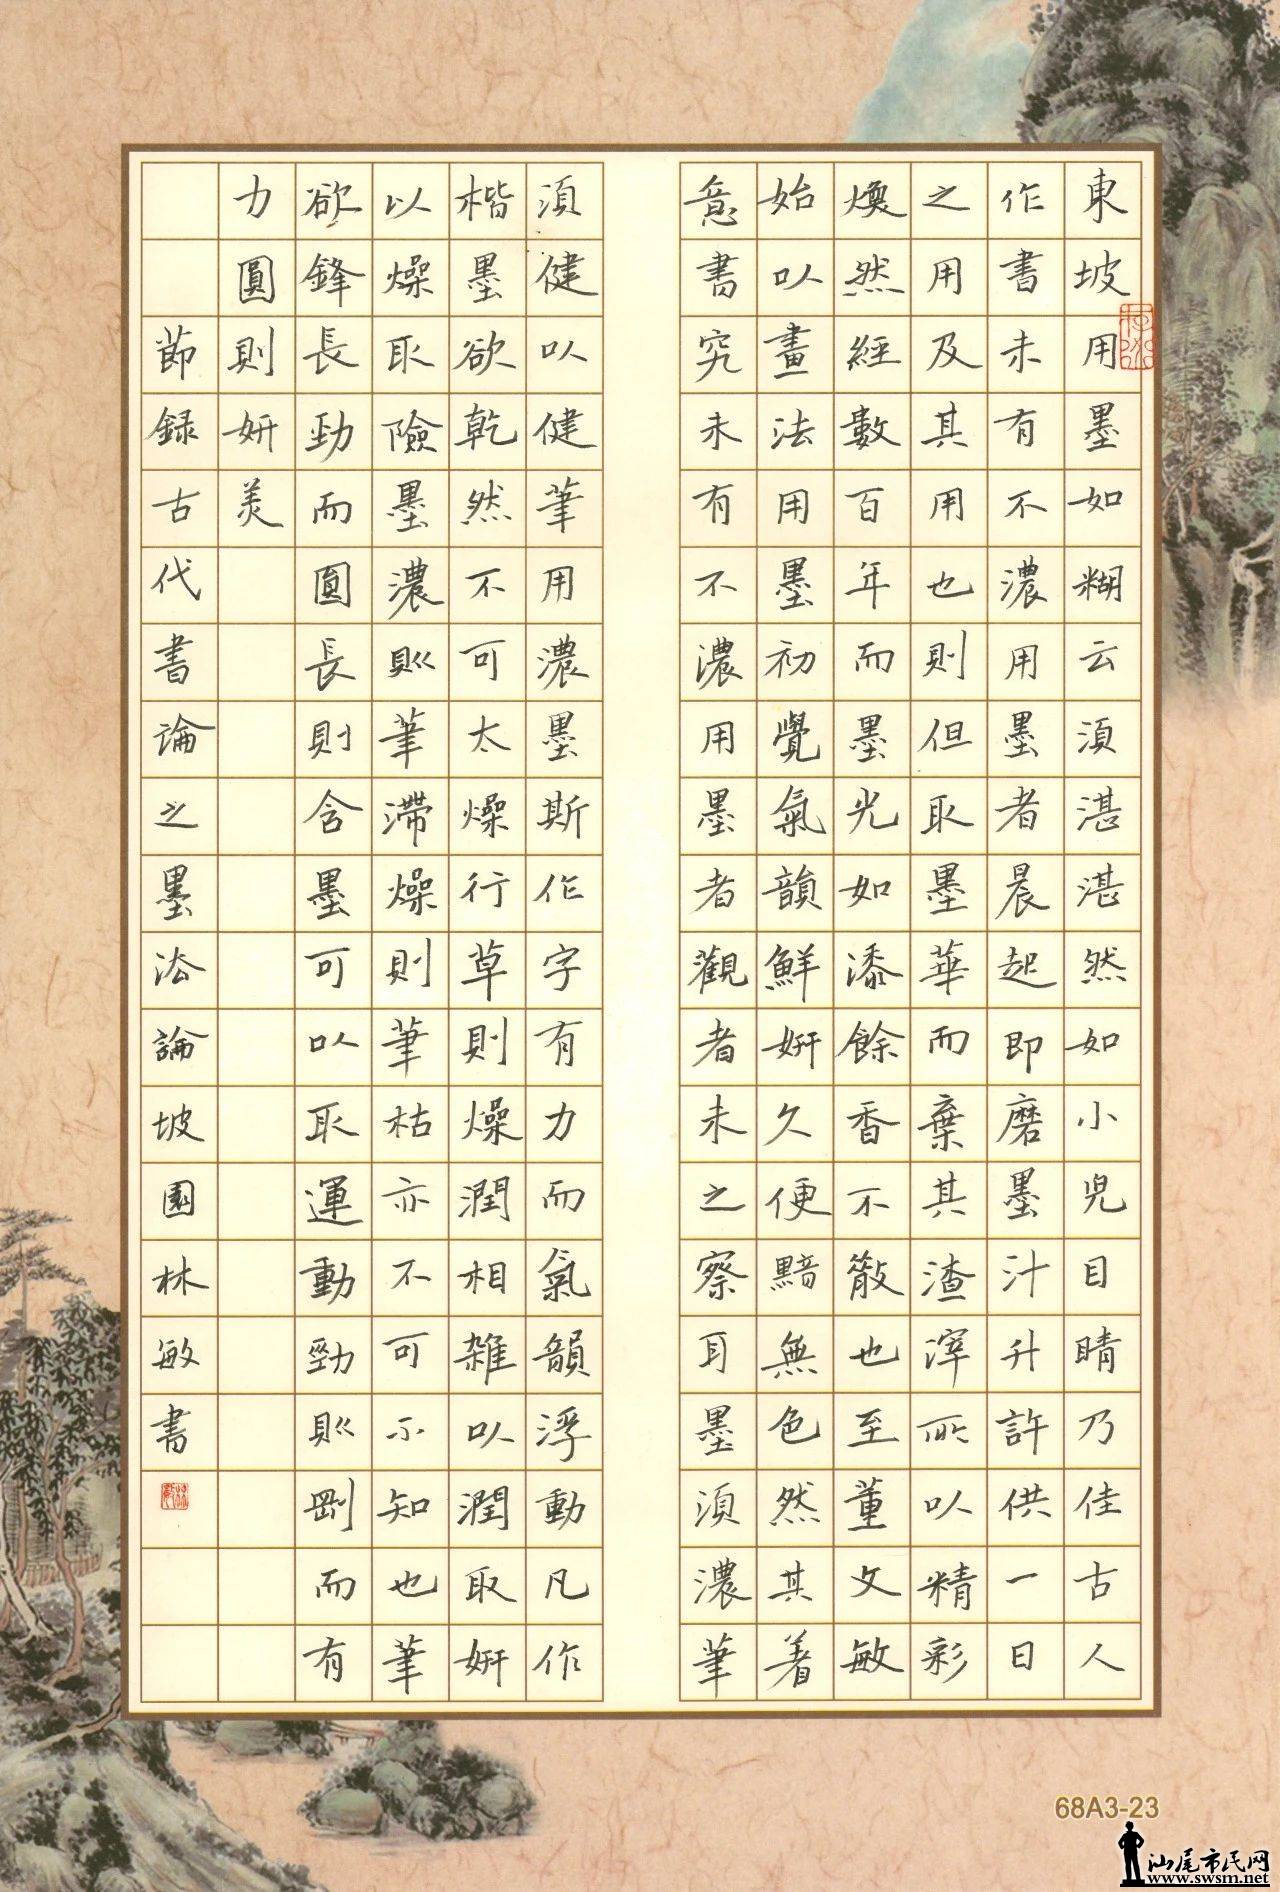 東坡用墨如糊云須湛湛然如小兒目睛乃佳古人
作書未有不濃用墨者晨起即磨墨汁升許供一日
之用及其用也則但取墨華而棄其渣滓所以精彩
煥然經數百年而墨光如漆餘香不散也至董文敏
始以畫法用墨初覺氣韻鮮妍久便黯無色然其著
意書究未有不濃用墨者觀者未之察耳墨須濃筆
須健以健筆用濃墨斯作字有力而氣韻浮動凡作
楷墨欲乾然不可太燥行草則燥潤相雜以潤取妍
以燥取險墨濃則筆滯燥則筆枯亦不可不知也筆
欲鋒長勁而圓長則含墨可以取運動勁則剛而有
力圓則妍美
節録古代書論之墨法論坡園林敏書
68A3-23
汕尾市民网
www.swsm.net